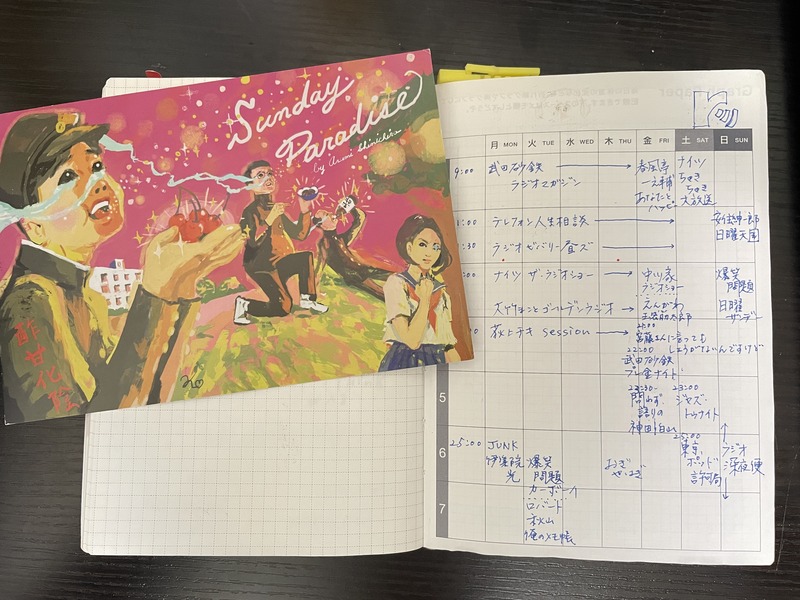 Sunday
Paradise
by Azumi Shinichiro
酢甘化合
月 MON 火 TUE 水 WED 木 THU 金 FRI 土 SAT 日 SUN
9:00 武田砂鉄
ラジオマガジン
春風亭
一之輔
あなたと
ハッピー
ナイツ
ちゃき
ちゃき
大放送
:00 テレフォン人生相談
安住紳一郎
日曜天国
:30 ラジオビバリー昼ズ
ナイツ ザ・ラジオショー
中川家
ラジオショー
爆笑
問題
日曜
サンデー
大竹まこと ゴールデンラジオ
えんがわ
玉袋筋太郎
:00 荻上チキ session
宮藤さんに言っても
しょうがないんですけど
22:00
武田砂鉄
プレ金ナイト
5
23:30-
問わず
語りの
神田伯山
23:00
ジャズ・
トゥナイト
6
25:00 JUNK
伊集院
光
爆笑
問題
カーボーイ
おぎ
やはぎ
25:00
東京
ポッド
許可局
ラジオ
深夜便
7
ロバート
秋山
俺のメモ帳